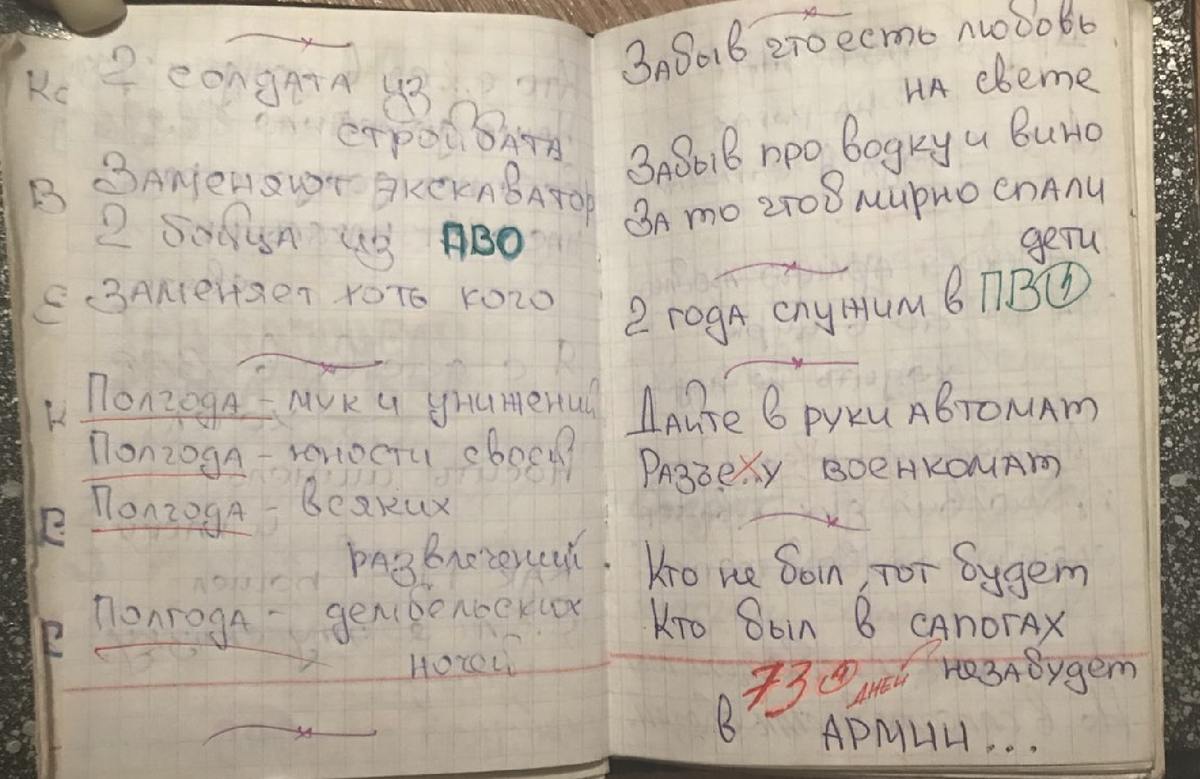 2 солдата из
стройбата
Заменяют экскаватор
2 бойца из ПВО
Заменяет хоть кого
Полгода - мук и унижений
Полгода - юности своей
Полгода - всяких
развлечений
Полгода - дембельских
ночей
Забыв что есть любовь
на свете
Забыв про водку и вино
За то чтоб мирно спали
дети
2 года служим в ПВО
Дайте в руки автомат
Разъеху военкомат
Кто не был, тот будет
Кто был в сапогах
незабудет
730 дней
в АРМИИ...